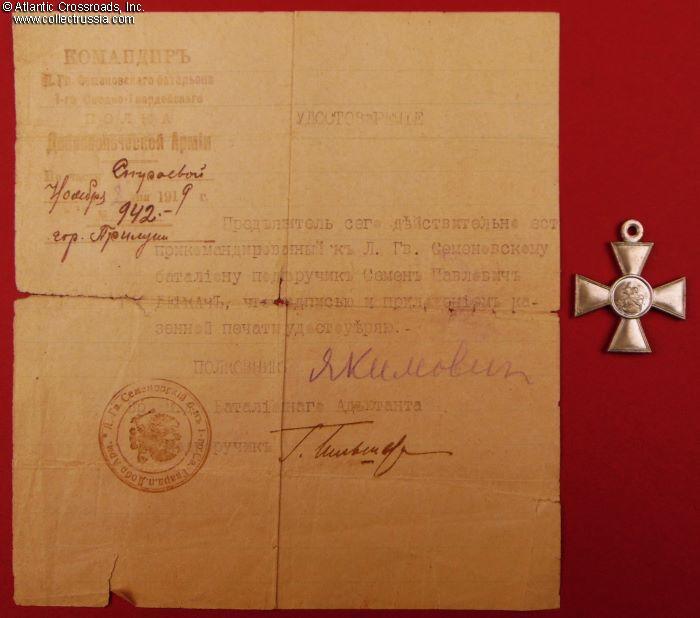 © Atlantic Crossroads, Inc.
www.collectrussia.com
КОМАНДИРЪ
Л. Гв. Семеновскаго батальона
1-го Сводно-Гвардейскаго
ПОЛКА
Добровольческой Арміи
Строевой
Ноября 191 9 г.
№ 942.-
гор. Прилуки
УДОСТОВѢРЕНІЕ
Предъявитель сего дѣйствительно ест
прикомандированный къ Л. Гв. Семеновскому
баталіону подпоручик Семен Павлович
что подписью и приложеніем ка-
зенной печати удостовѣряю.-
ПОЛКОВНИК Якимович
Баталіоннаго Адъютанта
ручикъ